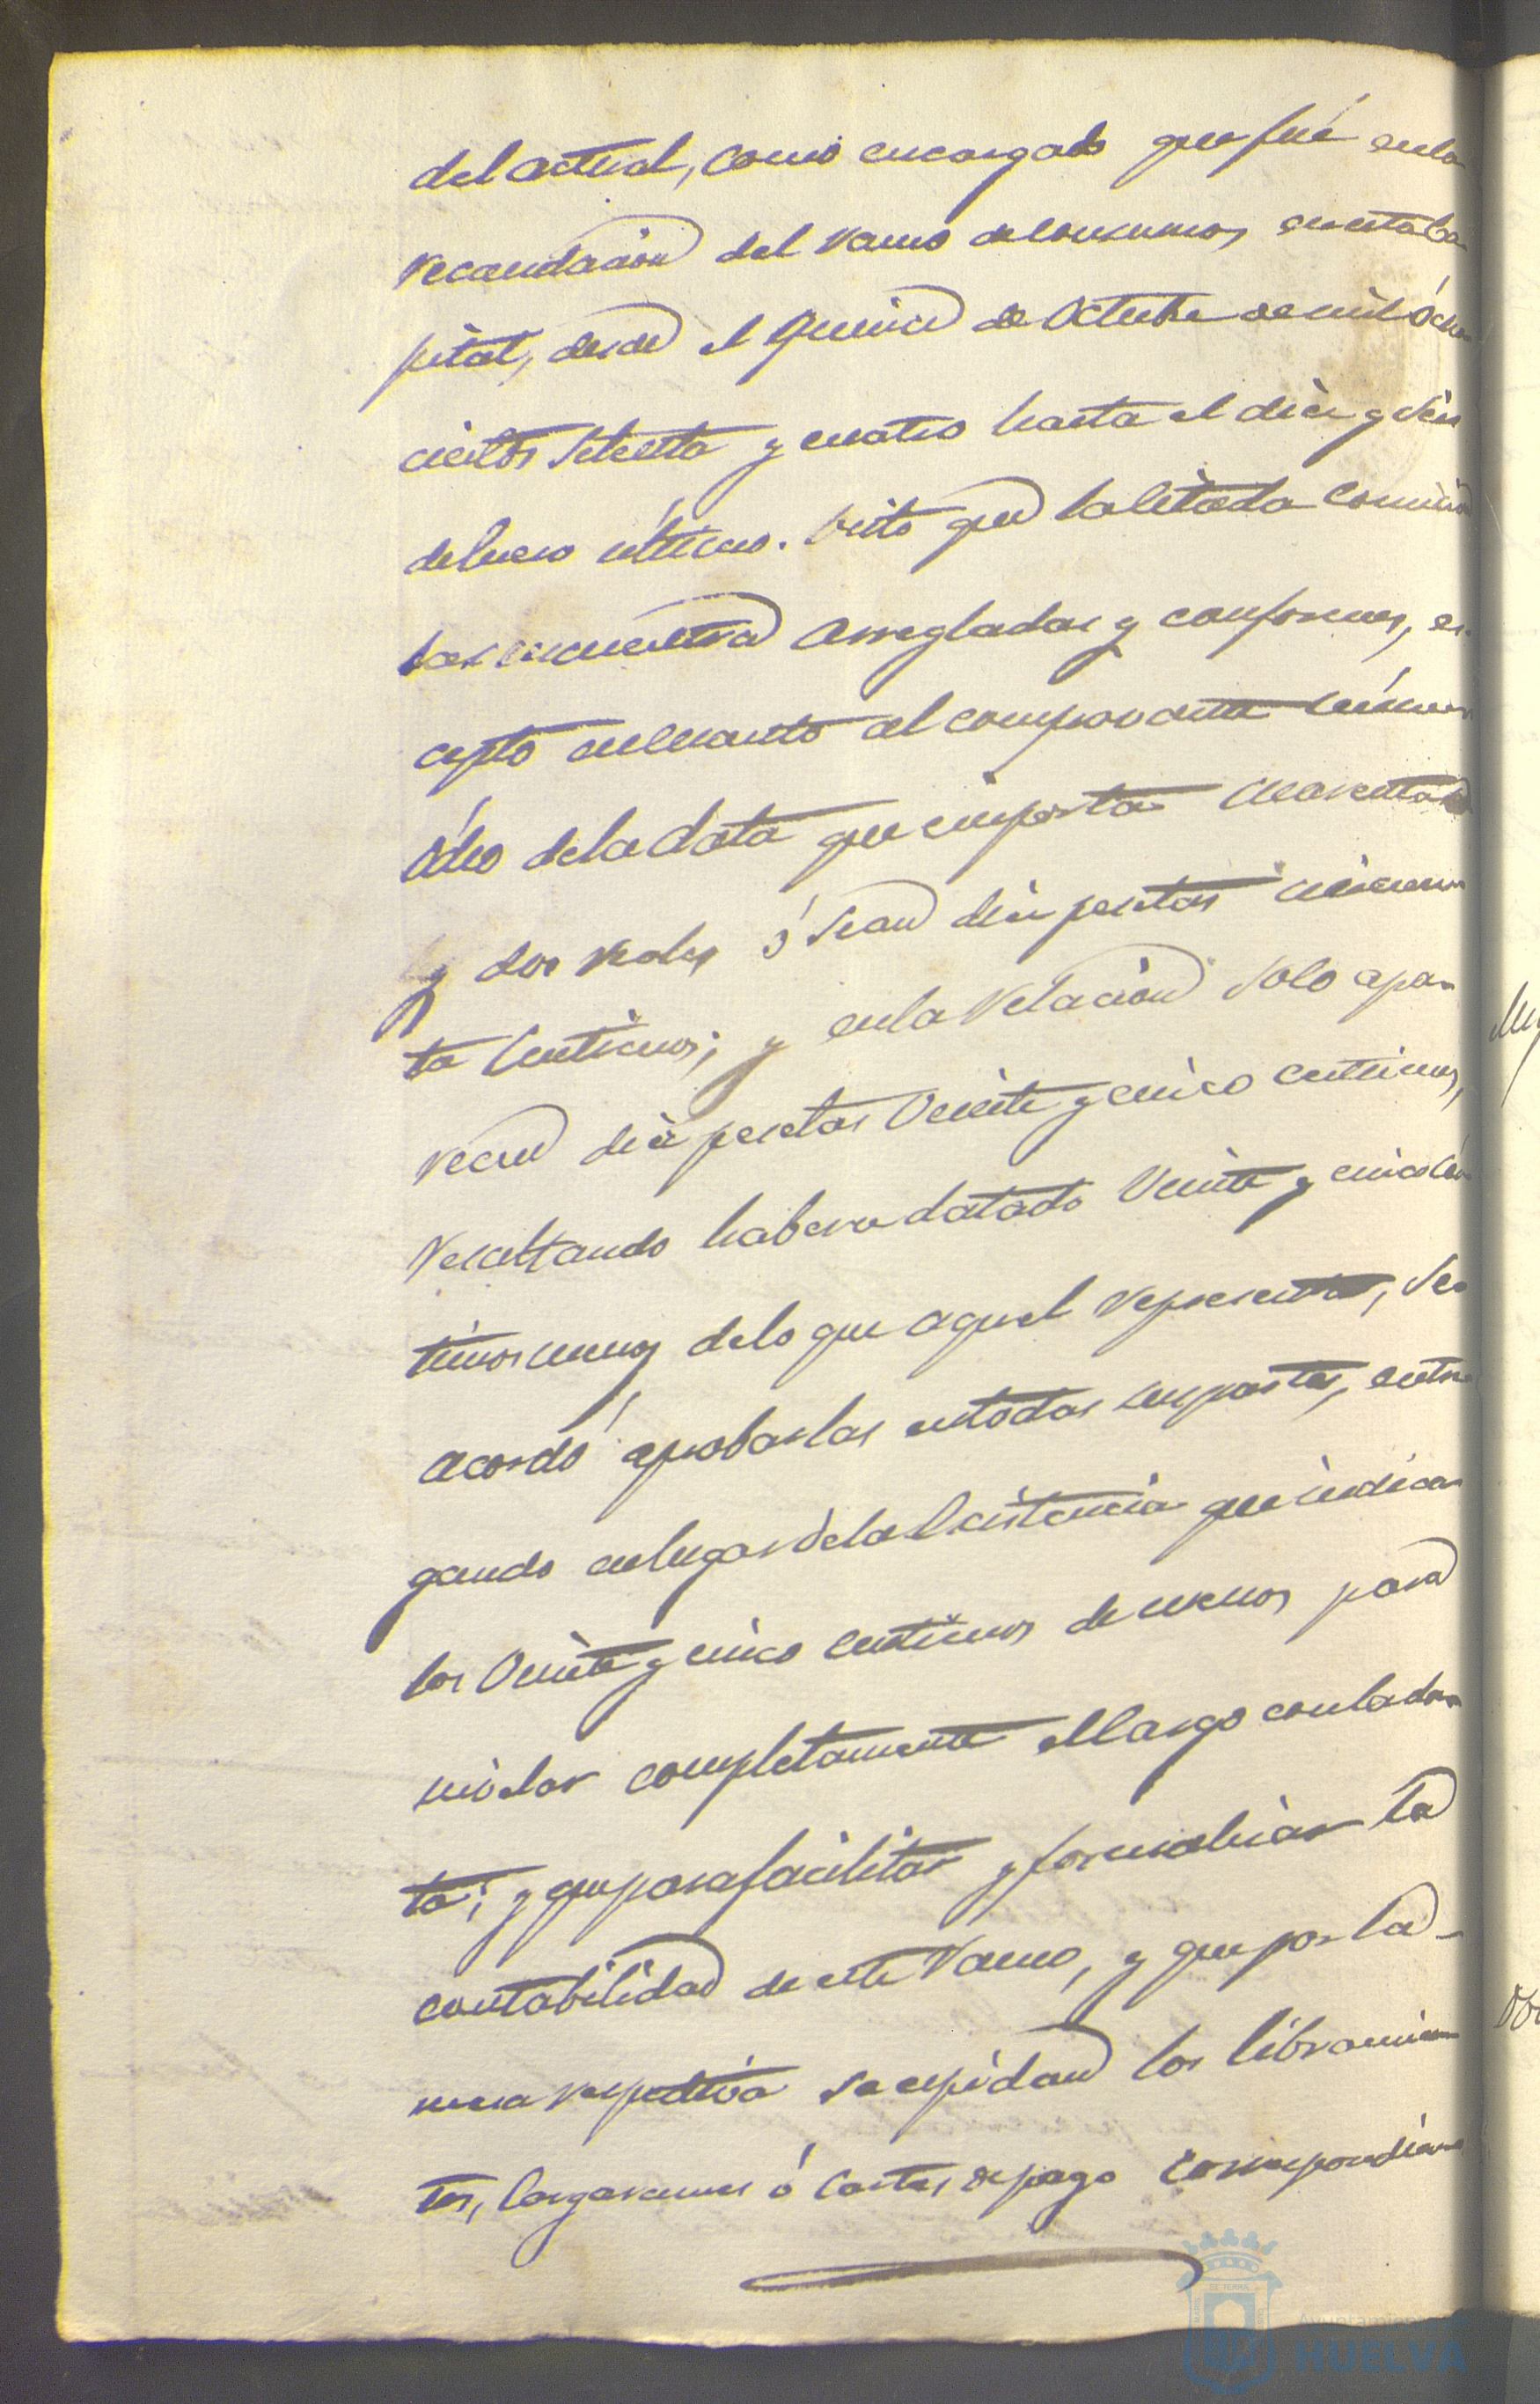 del actual, como encargado que fué en la
recaudacion del ramo de consumos, en esta ca
pital, desde el quince de Octubre de mil ócho
cientos Setenta y cuatro hasta el diez y Seis
de Enero último. Visto que la Citada Comision
las encuentra arregladas y conformes, es
cepto en cuanto al comprovante número
ócho de la data que importa cuarenta
y dos reales ó sean diez pesetas cincuen
ta Centimos; y en la relacion Solo apa
recen diez pesetas Veinte y cinco centimos,
resultando haberse datado Veinte y cinco Cén
timos menos de lo que aquel representa, Se
acordó aprobarlas en todas sus partes, entre
gando en lugar de la Existencia que indica
los Veinte y cinco Centimos de menos para
nivelar completamente el Cargo con la da
ta; y que para facilitar y formalizar la
contabilidad de este ramo, y que por la
mesa respectiva se espidan los libramien
tos, Cargaremes ó Cartas de pago correspondien
Ayuntamiento
HUELVA